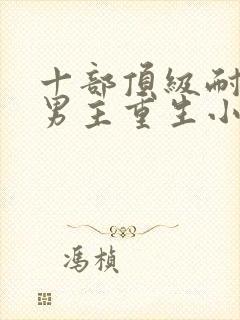 十部頂級耐
男主重生小
馮楨